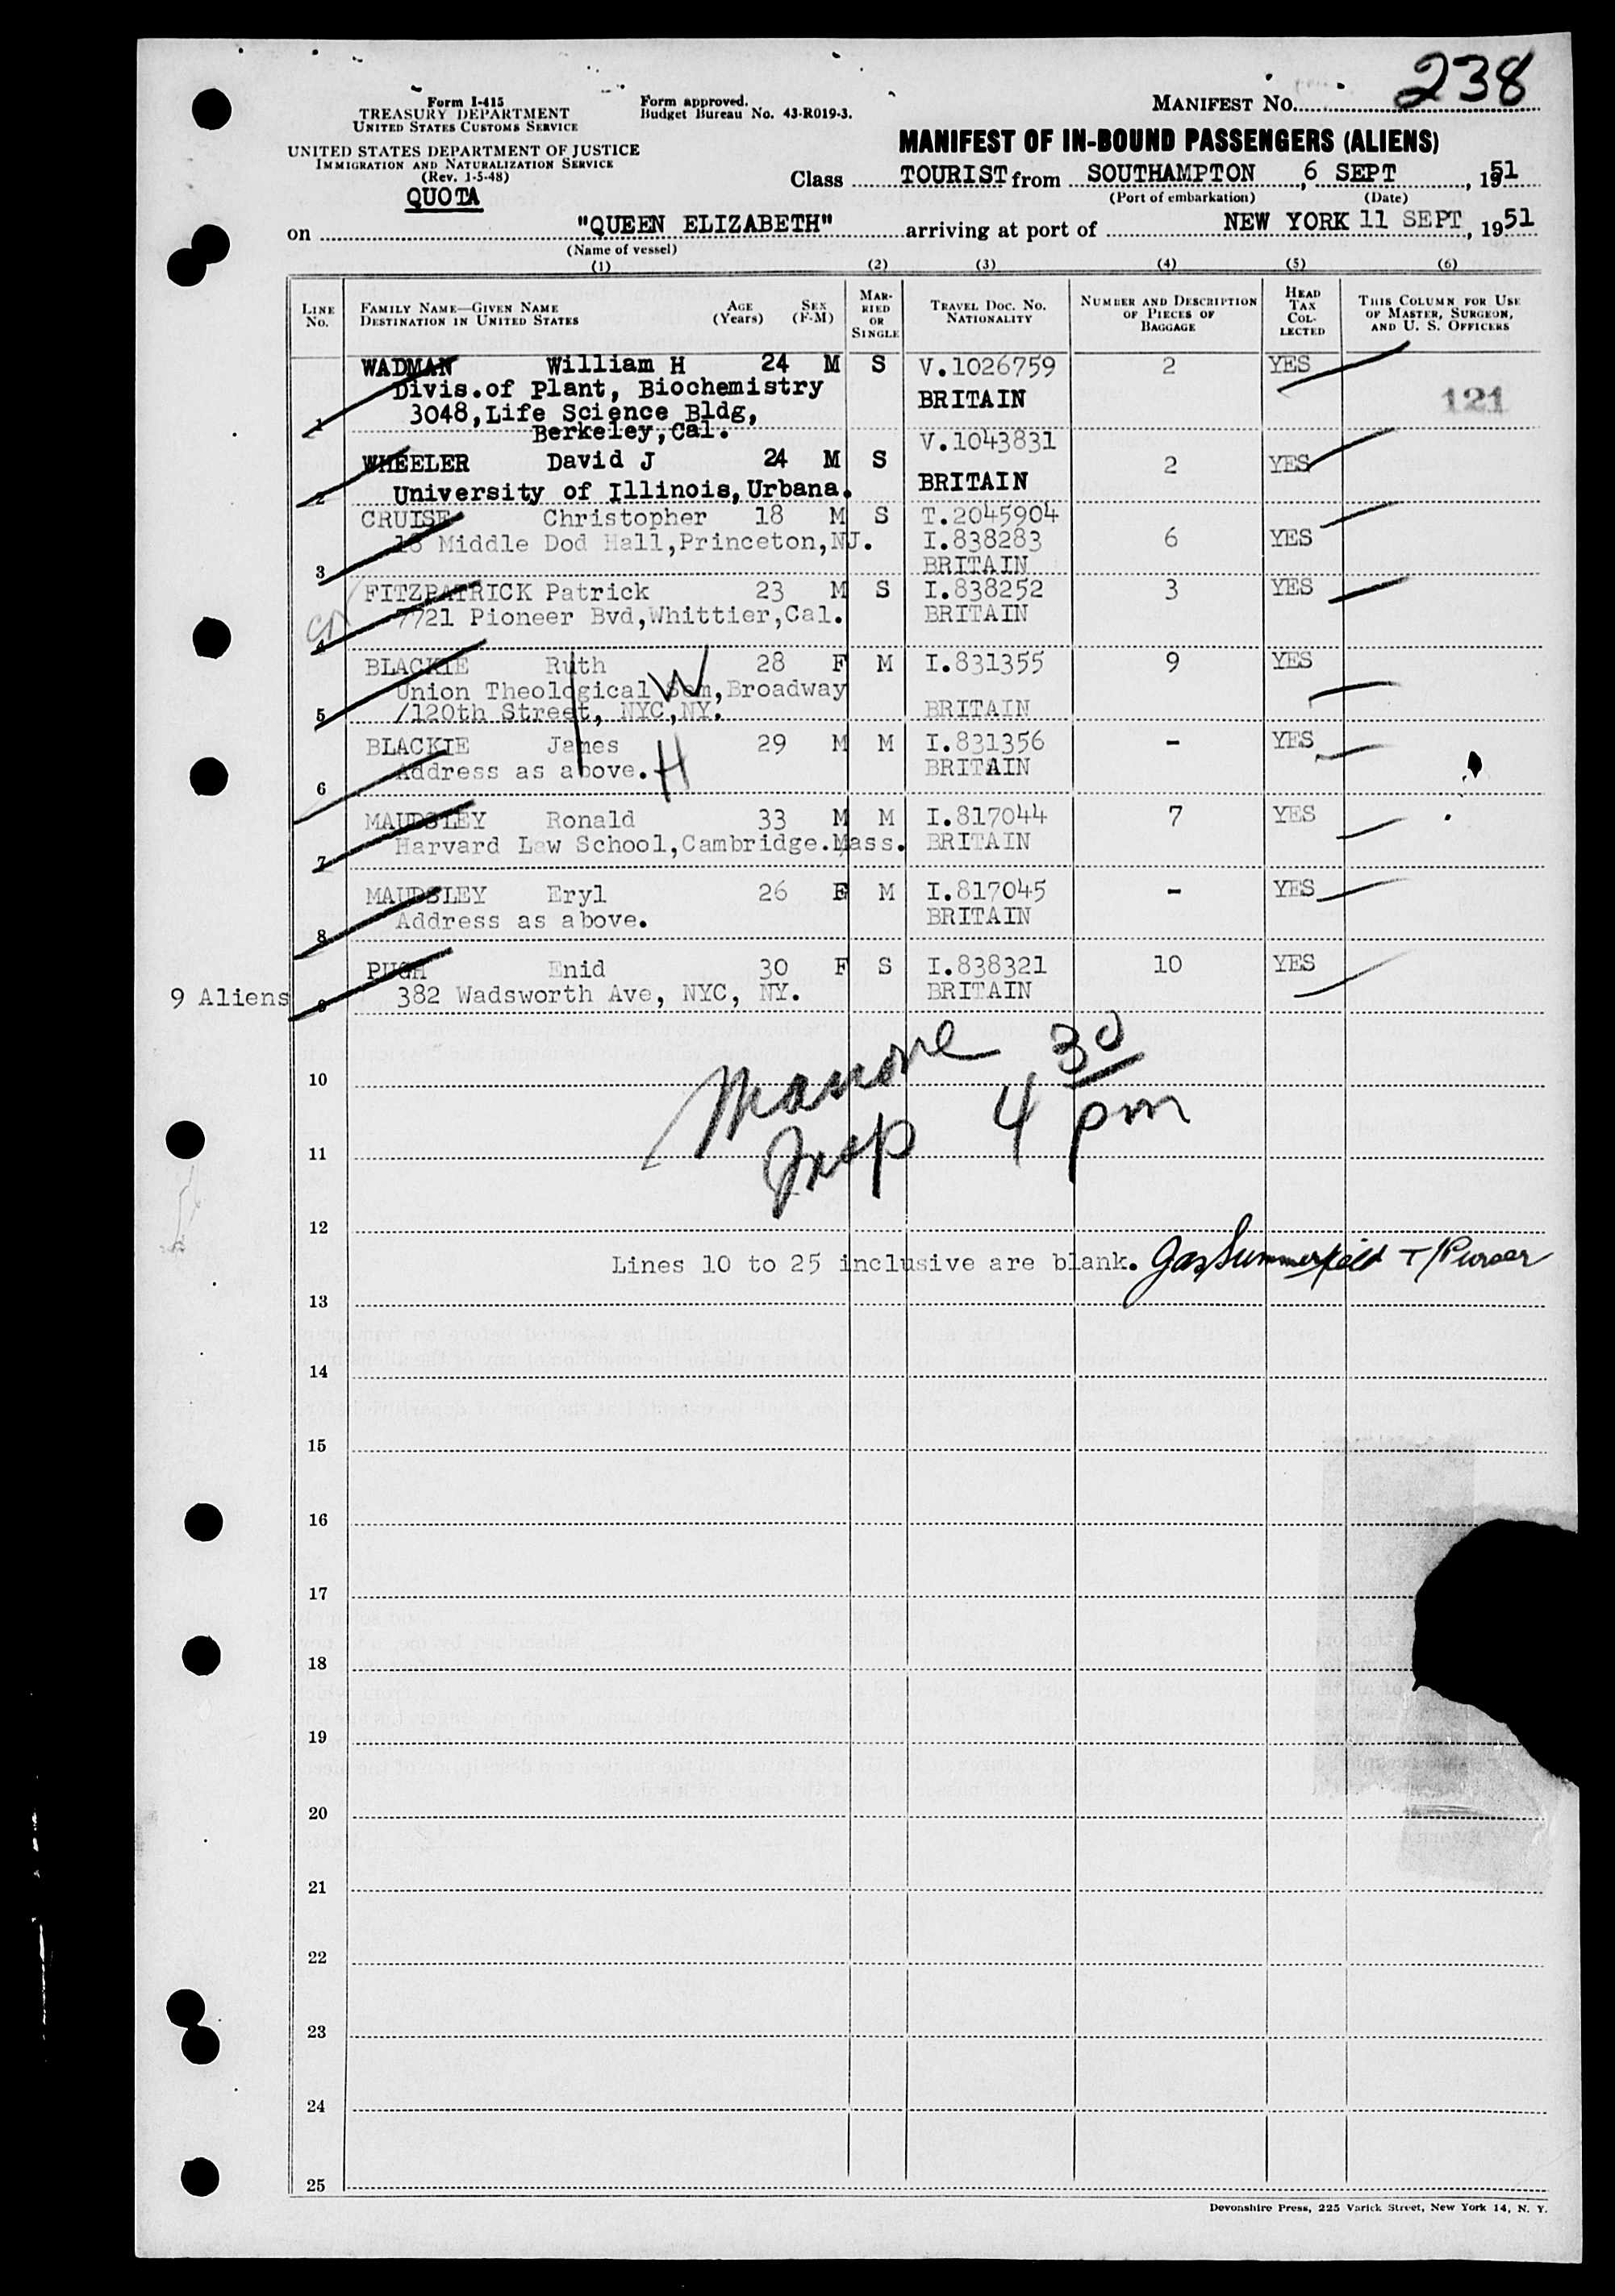 238
Form I-415
TREASURY DEPARTMENT
UNITED STATES CUSTOMS SERVICE
UNITED STATES DEPARTMENT OF JUSTICE
IMMIGRATION AND NATURALIZATION SERVICE
(Rev. 1-5-48)
QUOTA
Form approved.
Budget Bureau No. 43-R019-3.
MANIFEST No.
MANIFEST OF IN-BOUND PASSENGERS (ALIENS)
Class TOURIST from SOUTHAMPTON, 6 SEPT, 1951
(Port of embarkation) (Date)
on "QUEEN ELIZABETH" arriving at port of NEW YORK 11 SEPT, 1951
(Name of vessel)
(1) (2) (3) (4) (5) (6)
LINE No. FAMILY NAME—GIVEN NAME DESTINATION IN UNITED STATES AGE (Years) SEX (F-M) MARRIED OR SINGLE TRAVEL DOC. NO. NATIONALITY NUMBER AND DESCRIPTION OF PIECES OF BAGGAGE HEAD TAX COLLECTED THIS COLUMN FOR USE OF MASTER, SURGEON, AND U. S. OFFICERS
WADMAN William H 24 M S V.1026759 2 YES
Divis.of Plant, Biochemistry BRITAIN 121
3048,Life Science Bldg,
1 Berkeley,Cal.
V.1043831
WHEELER David J 24 M S 2 YES
2 University of Illinois,Urbana. BRITAIN
CRUISE Christopher 18 M S T.2045904
18 Middle Dod Hall,Princeton,NJ. I.838283 6 YES
3 BRITAIN
FITZPATRICK Patrick 23 M S I.838252 3 YES
7721 Pioneer Bvd,Whittier,Cal. BRITAIN
4
BLACKIE Ruth 28 F M I.831355 9 YES
Union Theological Sem,Broadway W
5 /120th Street, NYC,NY. BRITAIN
BLACKIE James 29 M M I.831356 - YES
Address as above. H BRITAIN
6
MAUDSLEY Ronald 33 M M I.817044 7 YES
7 Harvard Law School,Cambridge.Mass. BRITAIN
MAUDSLEY Eryl 26 F M I.817045 - YES
8 Address as above. BRITAIN
PUGH Enid 30 F S I.838321 10 YES
9 Aliens 9 382 Wadsworth Ave, NYC, NY. BRITAIN
Manone 4 30 pm
10
Insp
11
12
Lines 10 to 25 inclusive are blank. Jas Summerfield T/Purser
13
14
15
16
17
18
19
20
21
22
23
24
25
Devonshire Press, 225 Varick Street, New York 14, N. Y.